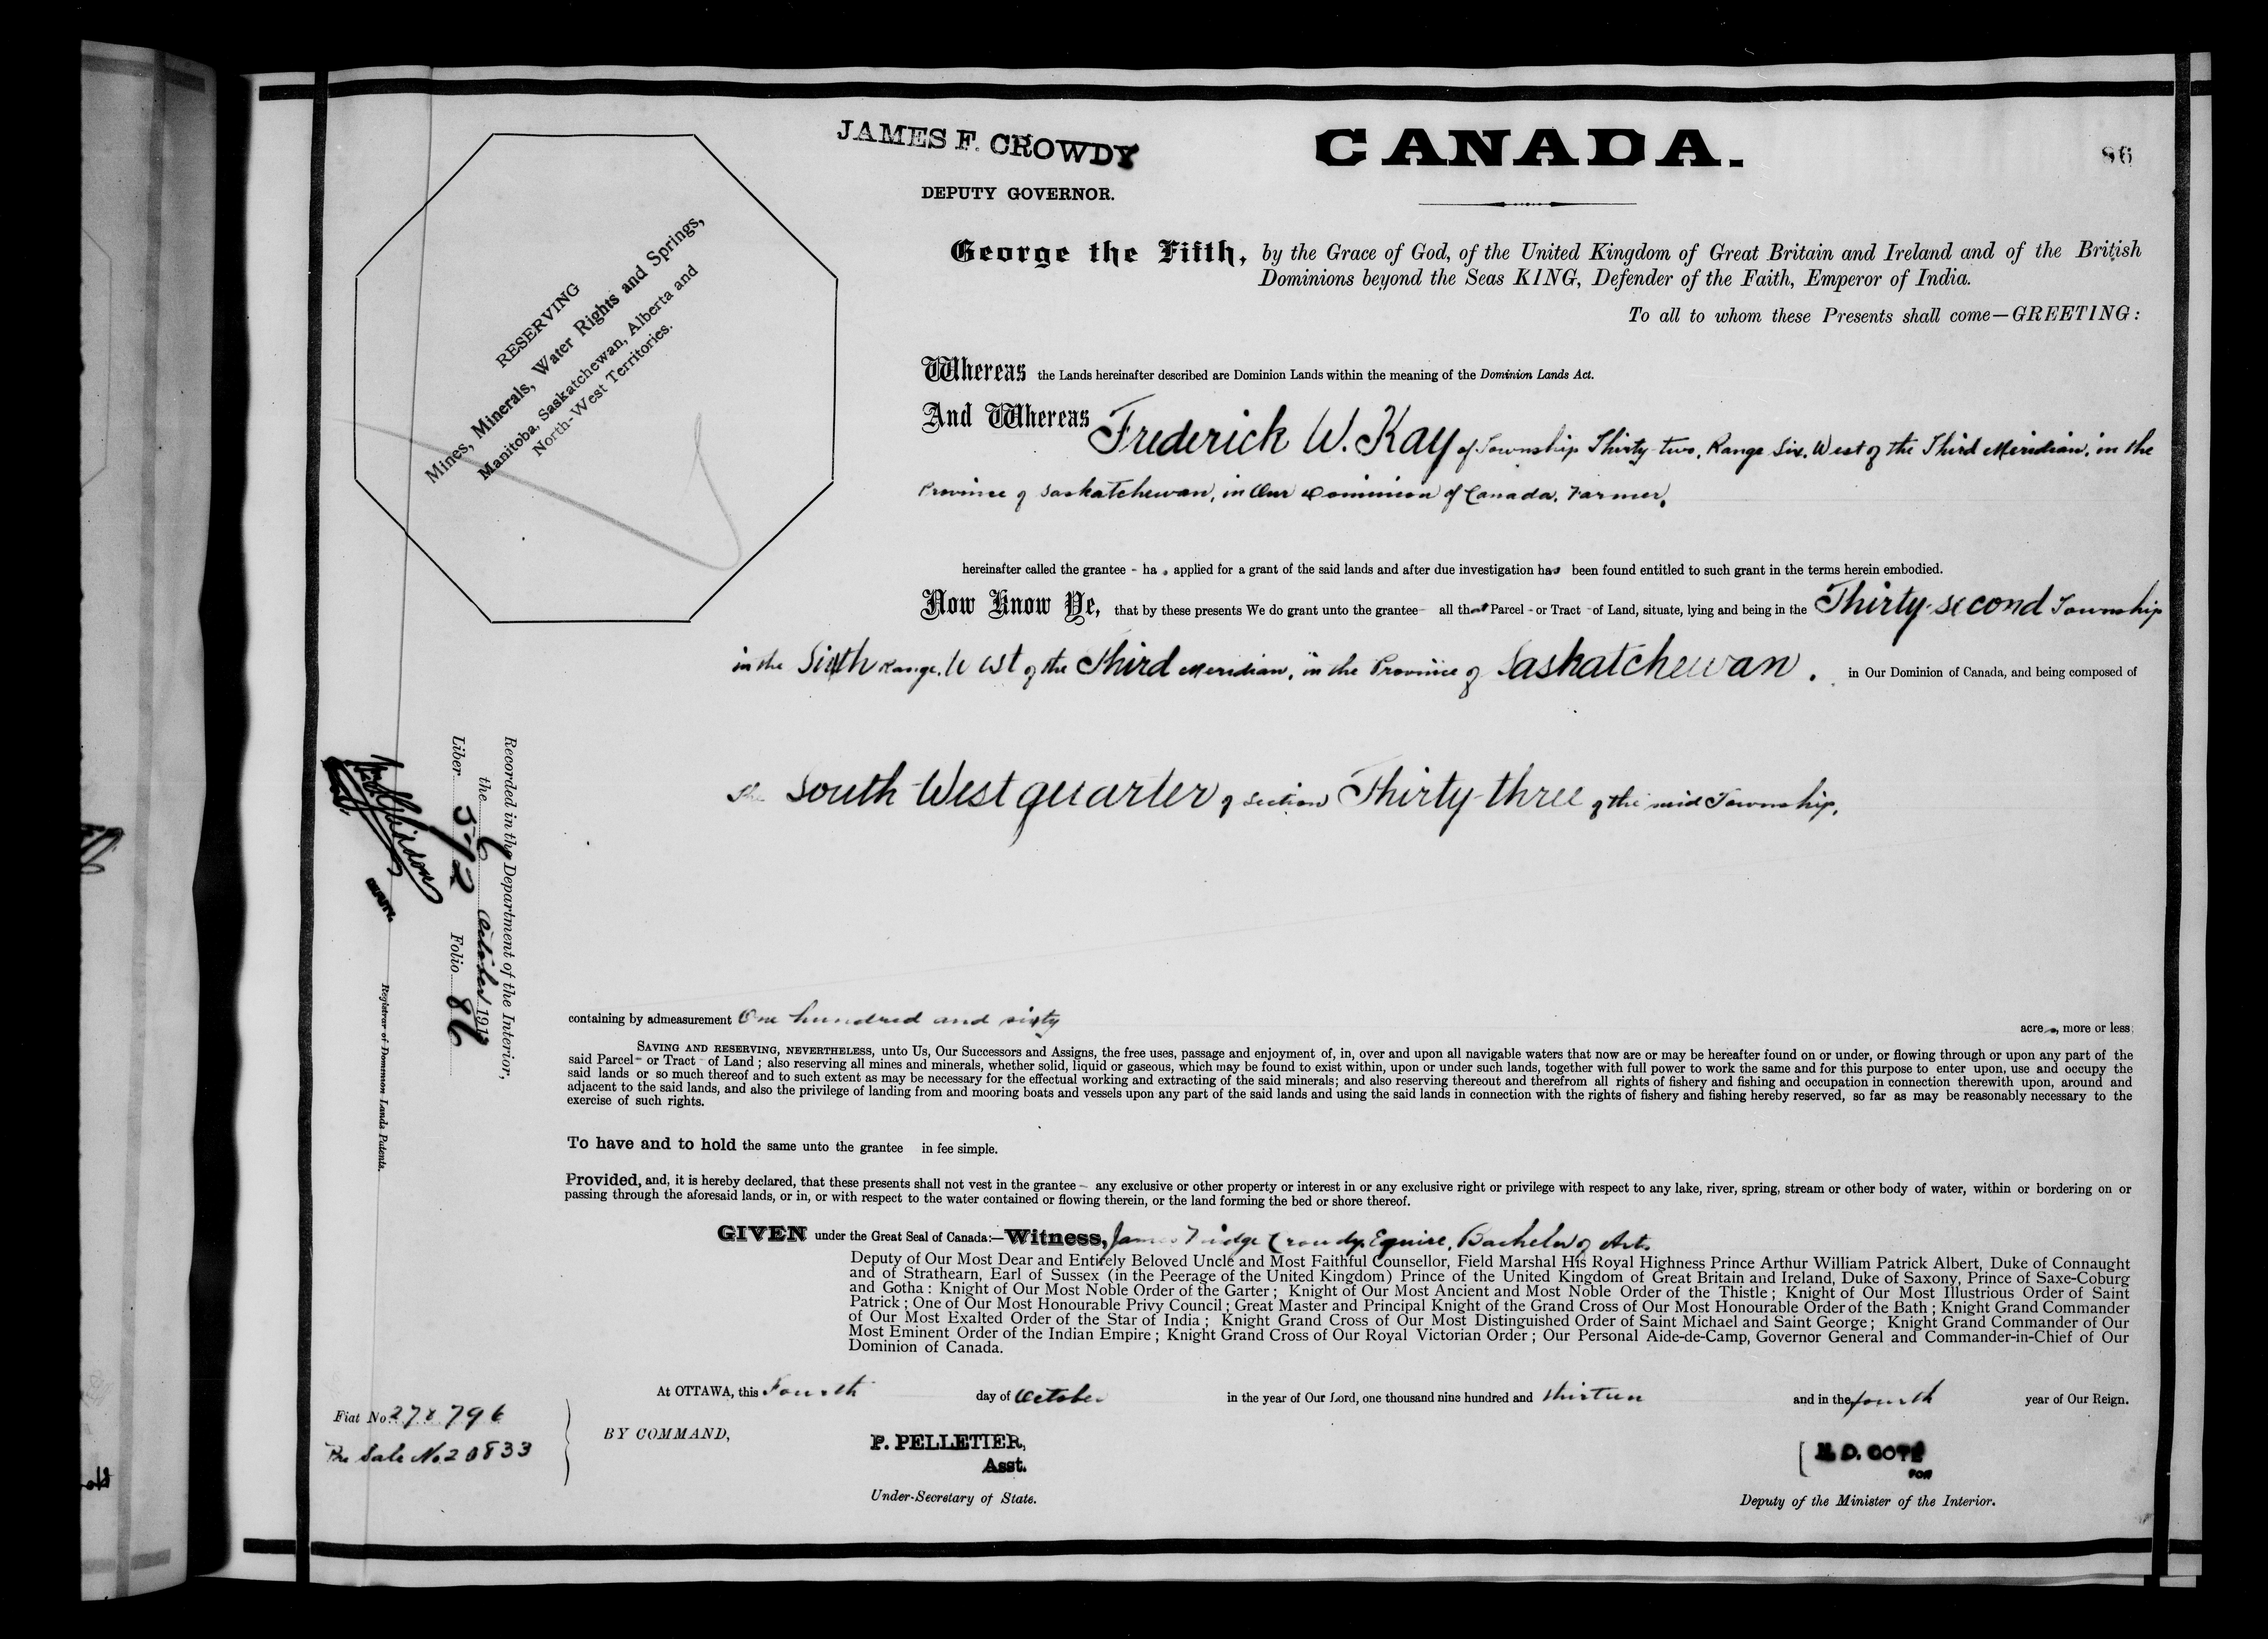 JAMES F. CROWDY
DEPUTY GOVERNOR.
CANADA.
86
RESERVING
Mines, Minerals, Water Rights and Springs,
Manitoba, Saskatchewan, Alberta and
North-West Territories.
George the Fifth, by the Grace of God, of the United Kingdom of Great Britain and Ireland and of the British
Dominions beyond the Seas KING, Defender of the Faith, Emperor of India.
To all to whom these Presents shall come—GREETING:
Whereas the Lands hereinafter described are Dominion Lands within the meaning of the Dominion Lands Act.
And Whereas Frederick W. Kay of Township Thirty-two, Range Six, West of the Third Meridian, in the
Province of Saskatchewan, in Our Dominion of Canada, Farmer,
hereinafter called the grantee - has applied for a grant of the said lands and after due investigation has been found entitled to such grant in the terms herein embodied.
Now Know Ye, that by these presents We do grant unto the grantee - all that Parcel - or Tract - of Land, situate, lying and being in the Thirty-second Township
in the Sixth Range, West of the Third Meridian, in the Province of Saskatchewan, in Our Dominion of Canada, and being composed of
the South West quarter of Section Thirty-three of the said Township,
Recorded in the Department of the Interior,
the 6 October 1913
Liber 592 Folio 86
DEPUTY
Registrar of Dominion Lands Patents.
containing by admeasurement One hundred and sixty acres, more or less;
SAVING AND RESERVING, NEVERTHELESS, unto Us, Our Successors and Assigns, the free uses, passage and enjoyment of, in, over and upon all navigable waters that now are or may be hereafter found on or under, or flowing through or upon any part of the
said Parcel - or Tract - of Land; also reserving all mines and minerals, whether solid, liquid or gaseous, which may be found to exist within, upon or under such lands, together with full power to work the same and for this purpose to enter upon, use and occupy the
said lands or so much thereof and to such extent as may be necessary for the effectual working and extracting of the said minerals; and also reserving thereout and therefrom all rights of fishery and fishing and occupation in connection therewith upon, around and
adjacent to the said lands, and also the privilege of landing from and mooring boats and vessels upon any part of the said lands and using the said lands in connection with the rights of fishery and fishing hereby reserved, so far as may be reasonably necessary to the
exercise of such rights.
To have and to hold the same unto the grantee in fee simple.
Provided, and, it is hereby declared, that these presents shall not vest in the grantee - any exclusive or other property or interest in or any exclusive right or privilege with respect to any lake, river, spring, stream or other body of water, within or bordering on or
passing through the aforesaid lands, or in, or with respect to the water contained or flowing therein, or the land forming the bed or shore thereof.
GIVEN under the Great Seal of Canada:—Witness, James Fridge Crowdy, Esquire, Bachelor of Arts.
Deputy of Our Most Dear and Entirely Beloved Uncle and Most Faithful Counsellor, Field Marshal His Royal Highness Prince Arthur William Patrick Albert, Duke of Connaught
and of Strathearn, Earl of Sussex (in the Peerage of the United Kingdom) Prince of the United Kingdom of Great Britain and Ireland, Duke of Saxony, Prince of Saxe-Coburg
and Gotha: Knight of Our Most Noble Order of the Garter; Knight of Our Most Ancient and Most Noble Order of the Thistle; Knight of Our Most Illustrious Order of Saint
Patrick; One of Our Most Honourable Privy Council; Great Master and Principal Knight of the Grand Cross of Our Most Honourable Order of the Bath; Knight Grand Commander
of Our Most Exalted Order of the Star of India; Knight Grand Cross of Our Most Distinguished Order of Saint Michael and Saint George; Knight Grand Commander of Our
Most Eminent Order of the Indian Empire; Knight Grand Cross of Our Royal Victorian Order; Our Personal Aide-de-Camp, Governor General and Commander-in-Chief of Our
Dominion of Canada.
At OTTAWA, this Fourth day of October in the year of Our Lord, one thousand nine hundred and thirteen and in the fourth year of Our Reign.
Fiat No. 278796
Pre Sale No. 20833
BY COMMAND,
P. PELLETIER,
Asst.
Under-Secretary of State.
N. D. COTÉ
FOR
Deputy of the Minister of the Interior.